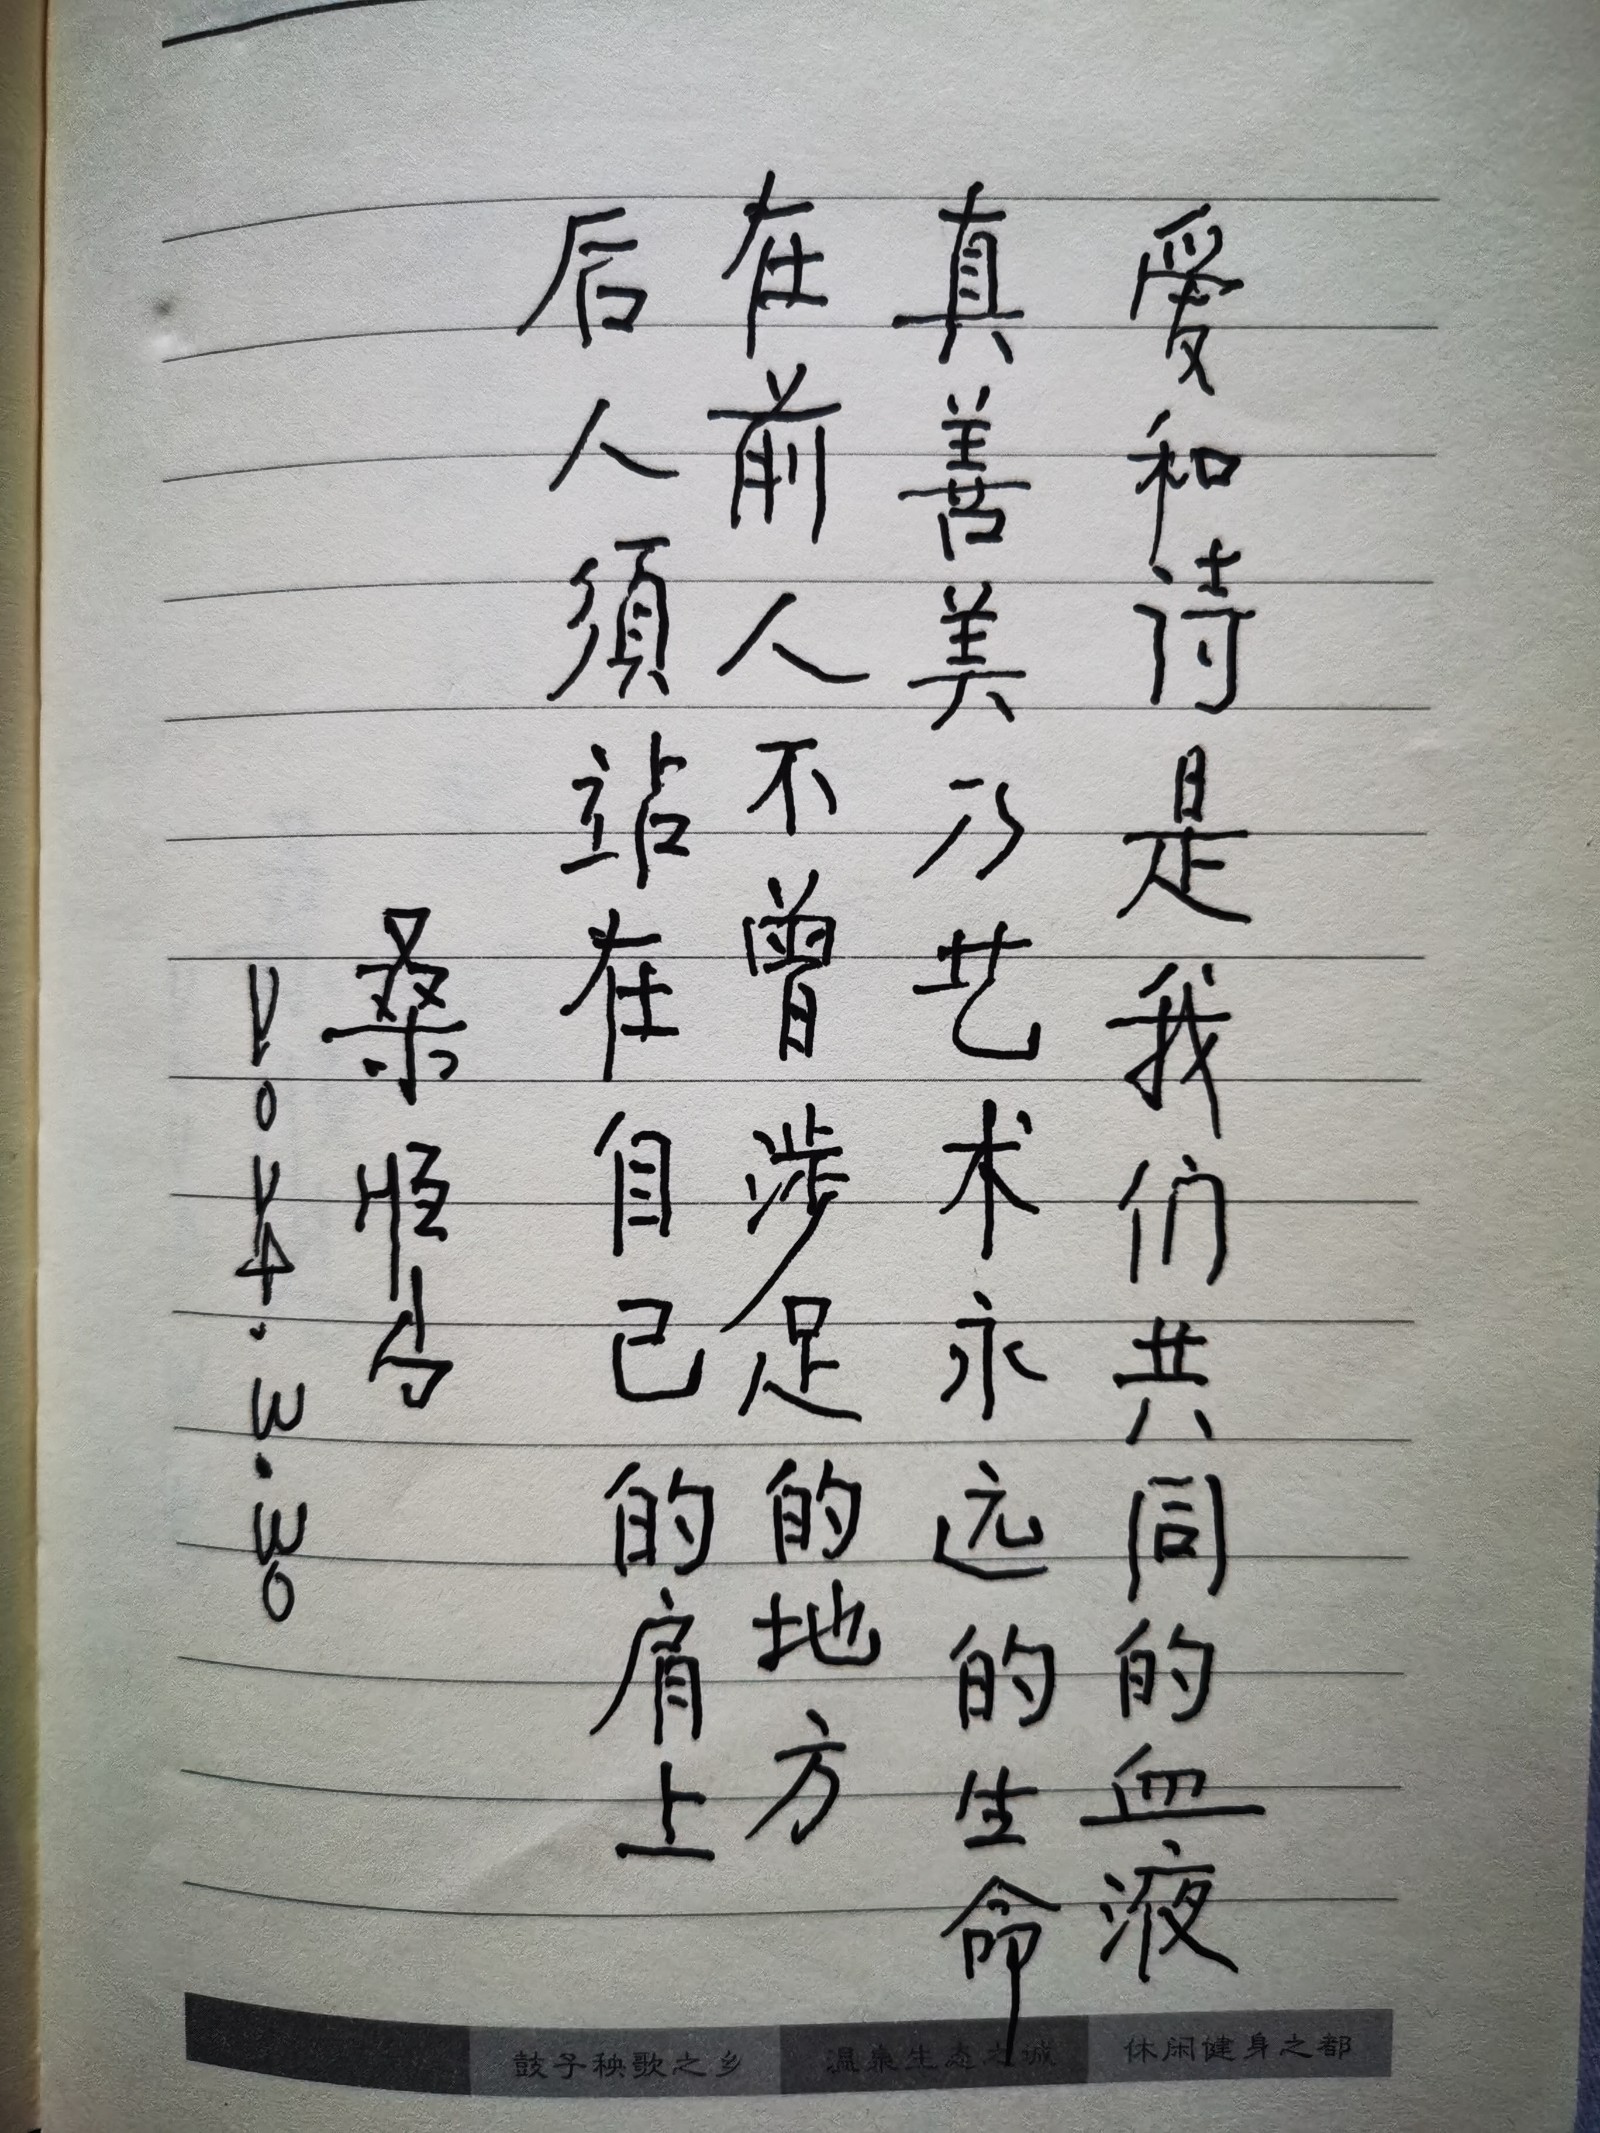 爱和诗是我们共同的血液
真善美乃艺术永远的生命
在前人不曾涉足的地方
后人須站在自己的肩上
桑恒昌
鼓子秧歌之乡
温泉生态之城
休闲健身之都